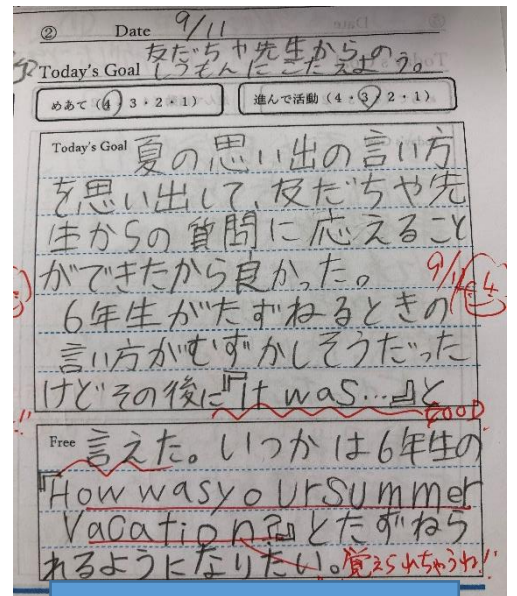 ② Date 9/11
友だちや先生からの
Today's Goal しつもんにこたえよう。
めあて（4・3・2・1） 進んで活動（4・3・2・1）
Today's Goal 夏の思い出の言い方
を思い出して、友だちや先
生からの質問に応えること
ができたから良かった。
9/11 4
6年生がたずねるときの
言い方がむずかしそうだった
けどその後に『It was…』と
GOOD
Free 言えた。いつかは6年生の
『How was your summer
vacation?』とたずねら
れるようになりたい。覚えられちゃうね!!